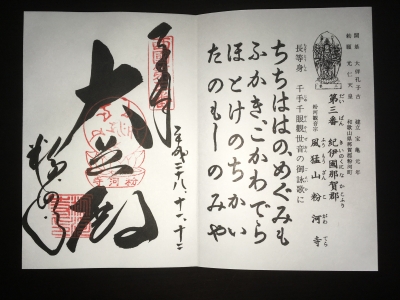 開基 大伴孔子古
勅願 光仁天皇
建立 宝亀元年
和歌山県那賀郡粉河町
第三番 紀伊國那賀郡
風猛山 粉河寺
粉河観音宗
長等身 千手千眼観世音の御詠歌に
ちちははの、めぐみも
ふかき、こかわでら
ほとけのちかい
たのもしのみや
奉拝
平成二八、十一、十二
大悲殿
粉河寺